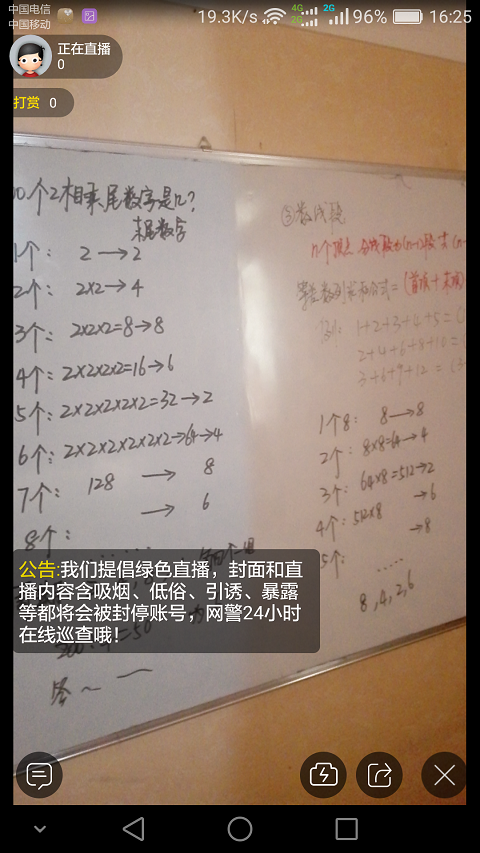 中国电信
中国移动
19.3K/s 4G 2G 2G 96% 16:25
正在直播
0
打赏 0
0个2相乘尾数字是几?
末尾数字
1个: 2→2
2个: 2×2→4
3个: 2×2×2=8→8
4个: 2×2×2×2=16→6
5个: 2×2×2×2×2=32→2
6个: 2×2×2×2×2×2→64→4
7个: 128 → 8
→ 6
8个:
......
=50
答~
③数线段
n个顶点
等差数列求和公式=(首项+末项)
例: 1+2+3+4+5=(
2+4+6+8+10=(
3+6+9+12=(3+
1个8: 8→8
2个: 8×8=64→4
3个: 64×8=512→2
4个: 512×8 →6
5个: →8
.....
8,4,2,6
公告:我们提倡绿色直播，封面和直
播内容含吸烟、低俗、引诱、暴露
等都将会被封停账号，网警24小时
在线巡查哦!